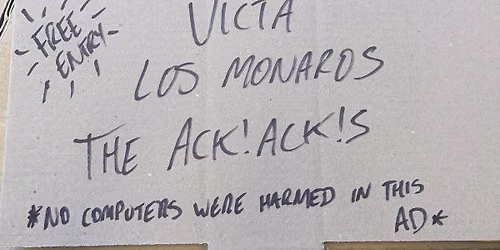 FREE
ENTRY
VICTA
LOS MONAROS
THE ACK!ACK!S
*NO COMPUTERS WERE HARMED IN THIS
AD*